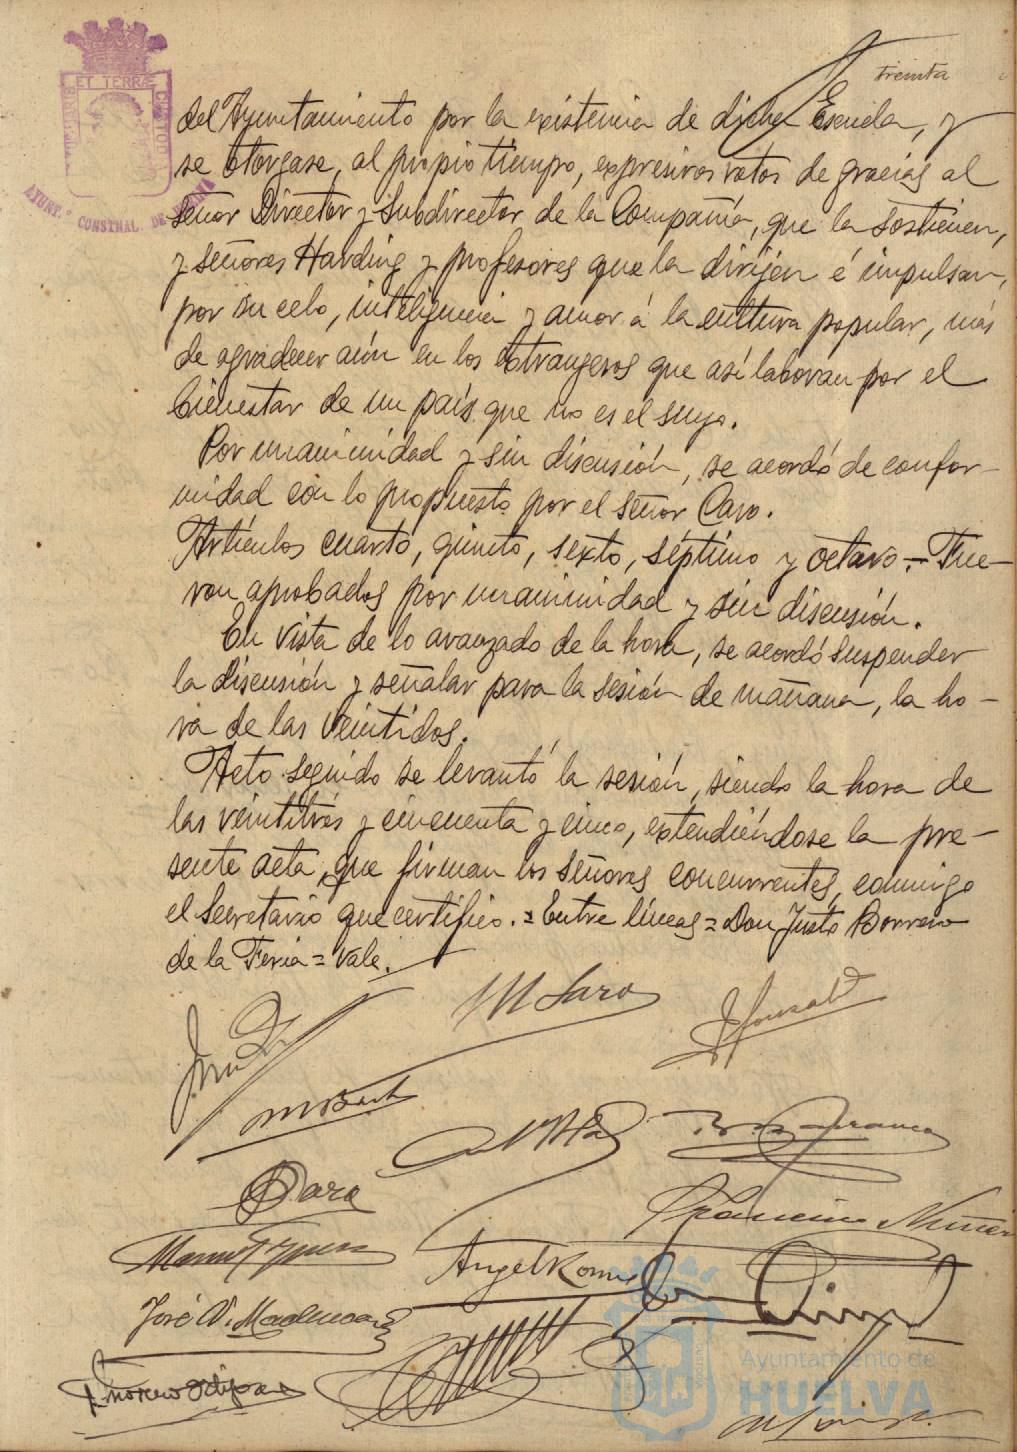 treinta
ET TERRÆ
AYUNT.º CONSTNAL. DE HUELVA
del Ayuntamiento por la existencia de dicha Escuela, y
se otorgase, al propio tiempo, expresivos votos de gracias al
señor Director y Subdirector de la Compañía, que la sostienen,
y señores Harding y profesores que la dirijen é impulsan,
por su celo, inteligencia y amor á la cultura popular, más
de agradecer aún en los extrangeros que así laboran por el
bienestar de un país que no es el suyo.
Por unanimidad y sin discusión, se acordó de confor-
midad con lo propuesto por el señor Caro.
Artículos cuarto, quinto, sexto, séptimo y octavo.- Fue-
ron aprobados por unanimidad y sin discusión.
En vista de lo avanzado de la hora, se acordó suspender
la discusión y señalar para la sesión de mañana, la ho-
ra de las veintidos.
Acto seguido se levantó la sesión, siendo la hora de
las veintitrés y cincuenta y cinco, extendiéndose la pre-
sente acta, que firman los señores concurrentes, conmigo
el Secretario que certifico.=Entre líneas=Don Justo Borrero
de la Feria=Vale.
M Saro
Francisco Nuñez
Angel
José
Ayuntamiento de
HUELVA